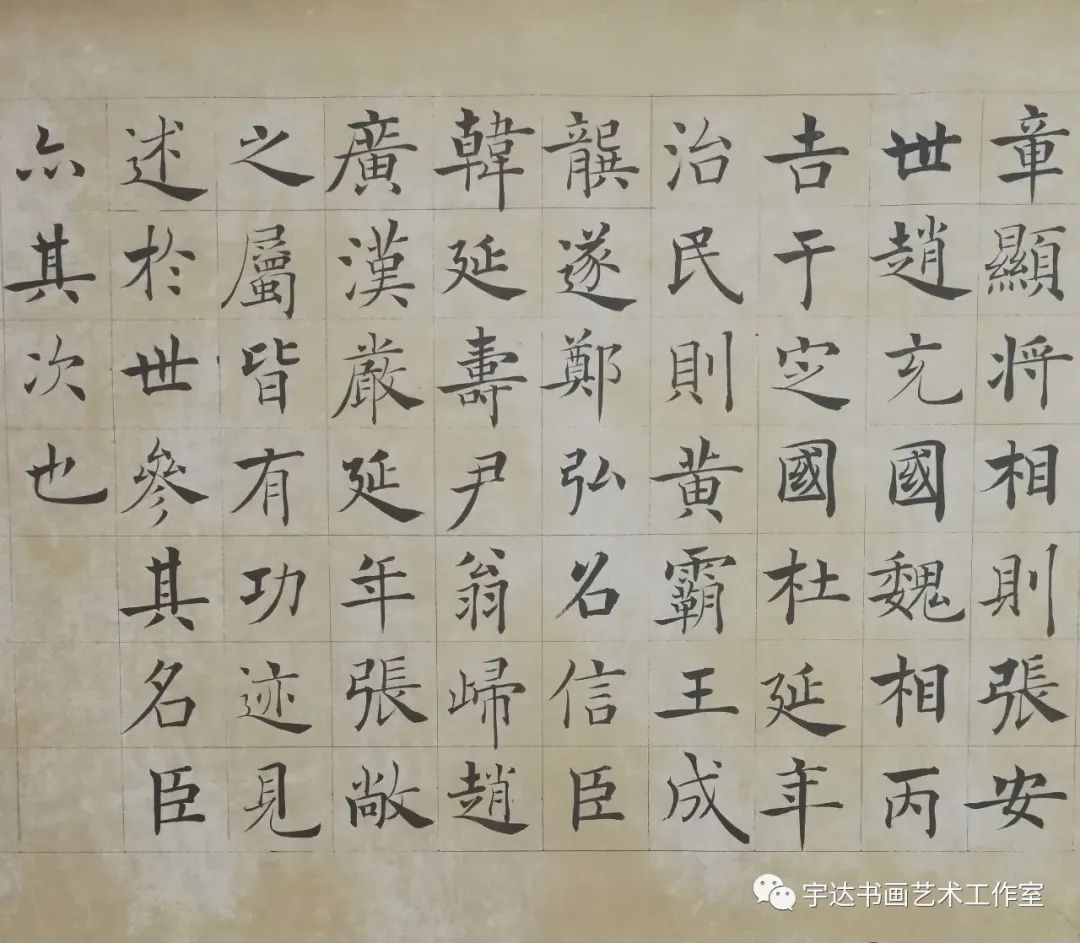 章顯将相則張安
世趙充國魏相丙
吉于定國杜延年
治民則黄霸王成
龔遂鄭弘召信臣
韓延壽尹翁歸趙
廣漢嚴延年張敞
之屬皆有功迹見
述於世參其名臣
亦其次也
宇达书画艺术工作室